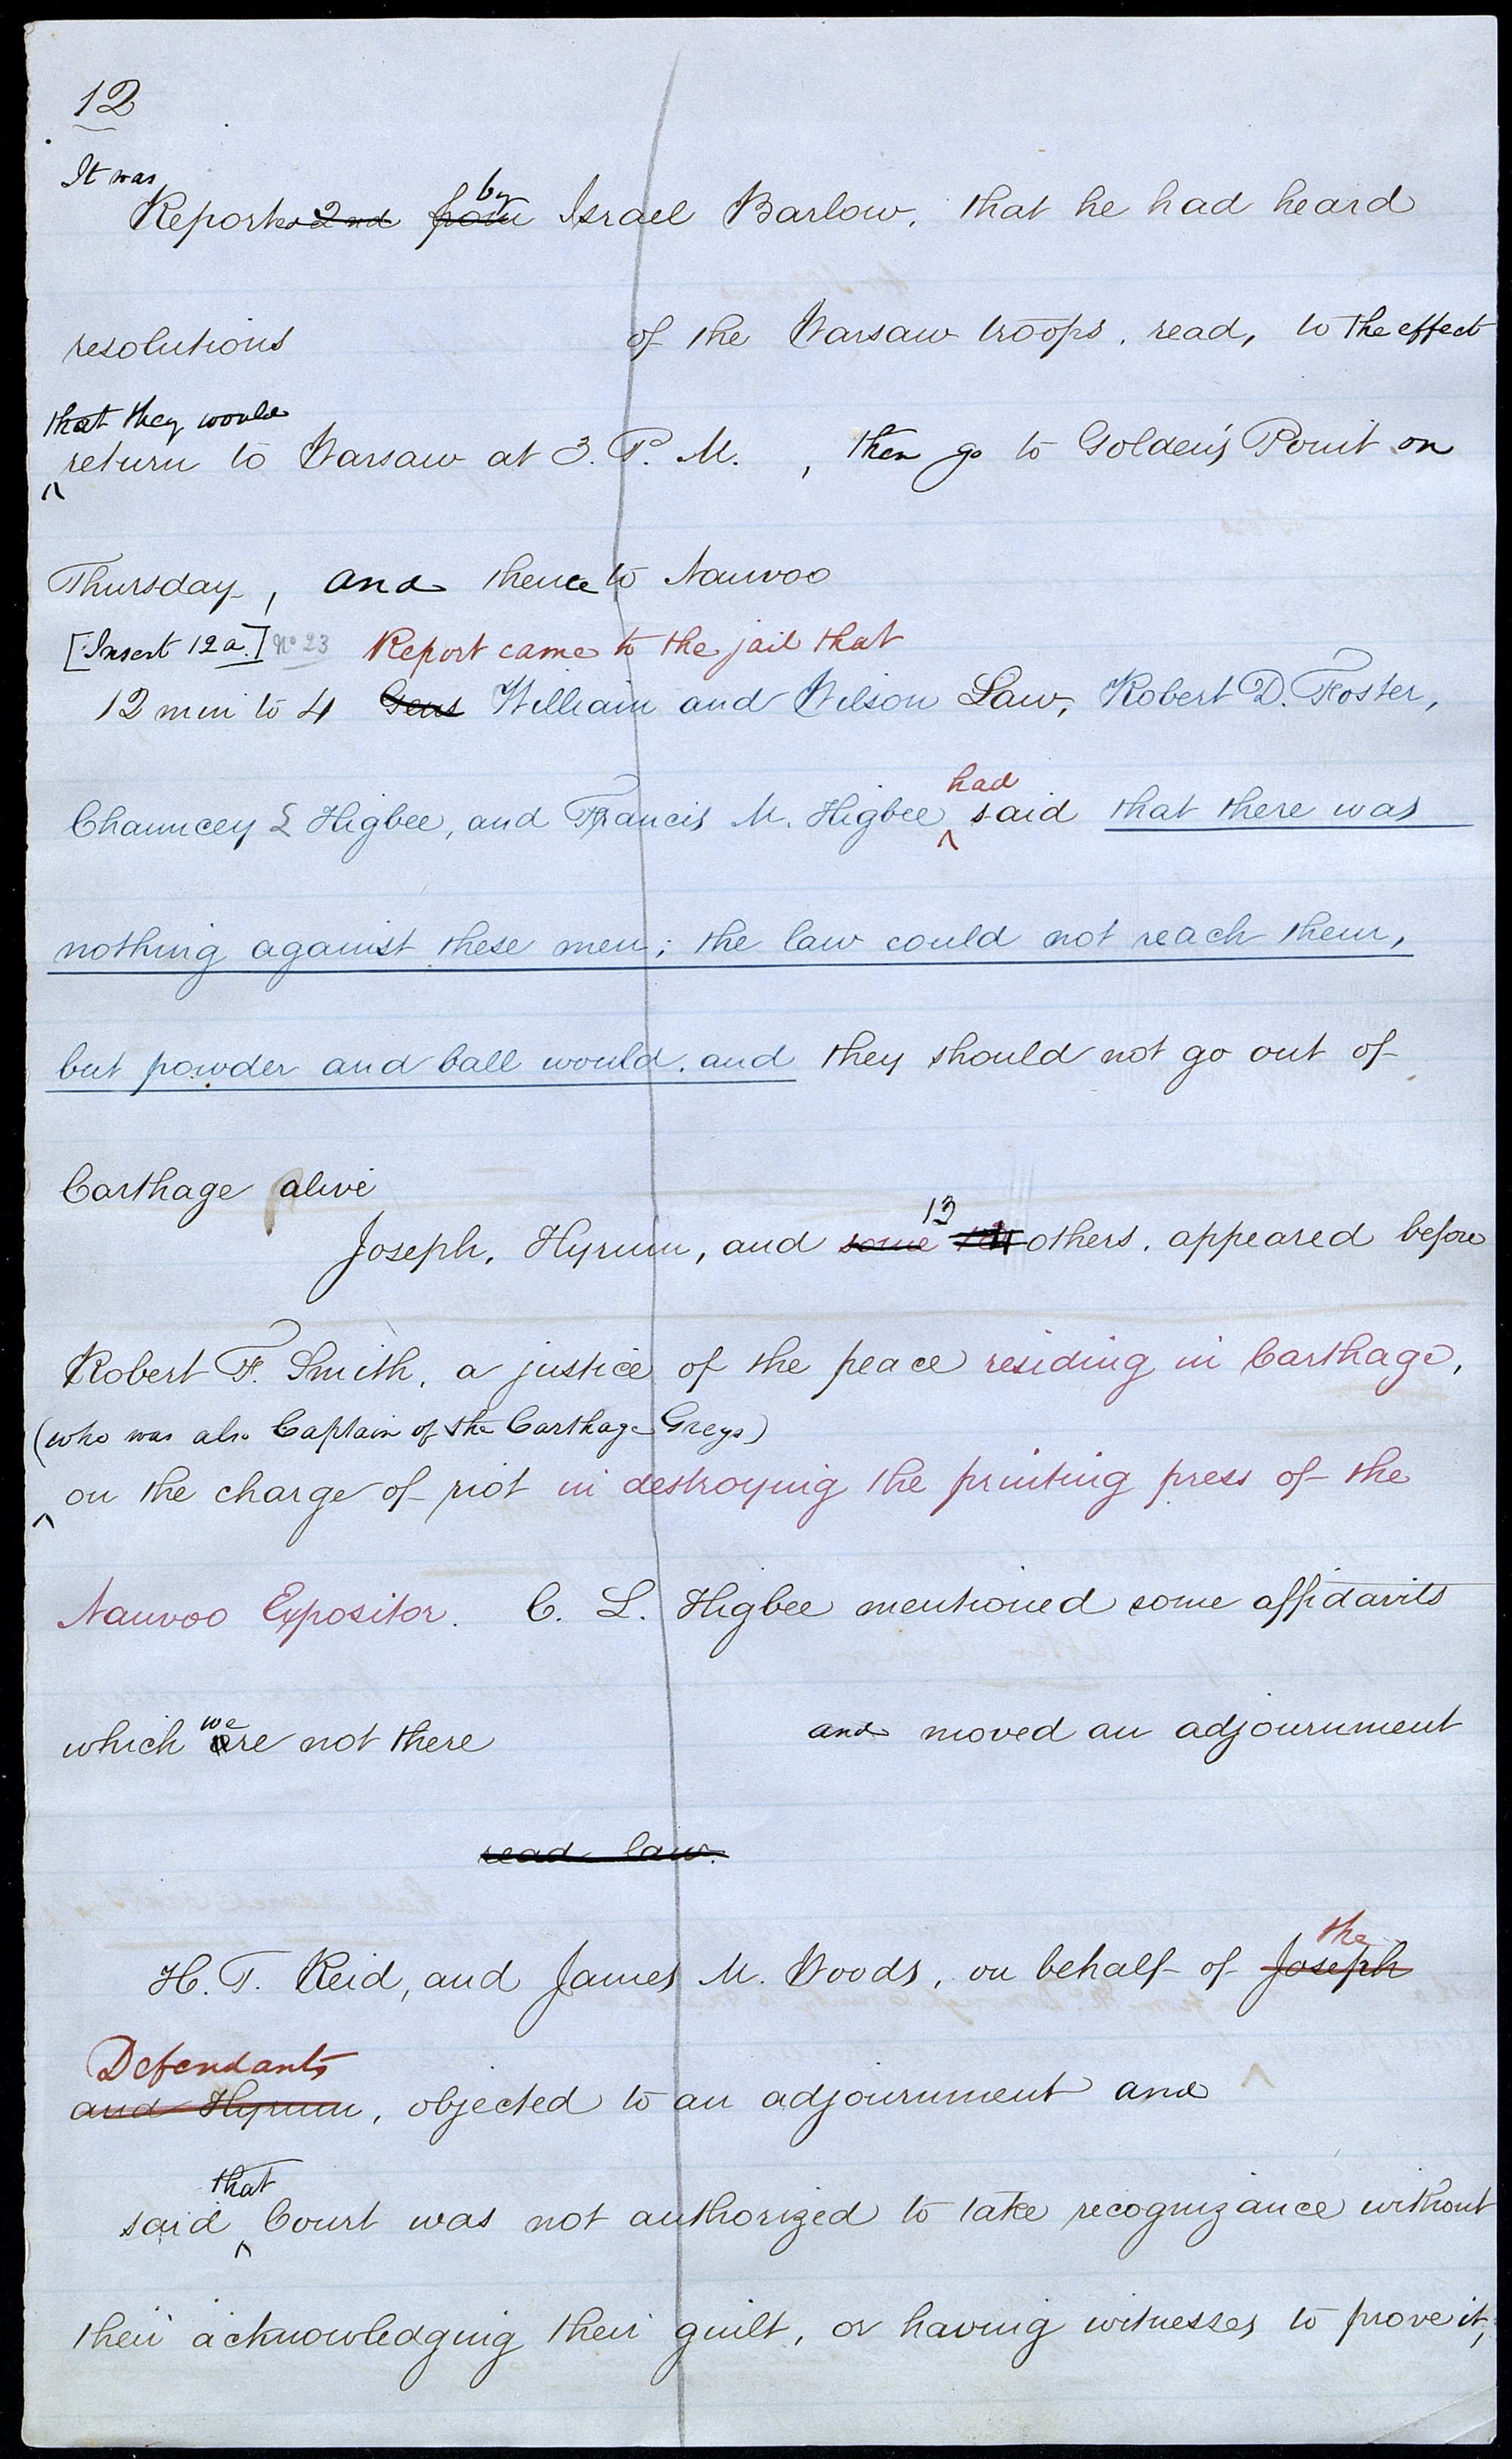 12
It was
Reported 2nd from by Israel Barlow, that he had heard
resolutions of the Warsaw troops, read, to the effect
that they would
return to Warsaw at 3. P. M. , then go to Golden's Point on
Thursday, and thence to Nauvoo
[Insert 12a.] No 23 Report came to the jail that
12 min to 4 Gens William and Wilson Law, Robert D. Foster,
had
Chauncey L Higbee, and Francis M. Higbee ^ said that there was
nothing against these men; the law could not reach them,
but powder and ball would, and they should not go out of
Carthage alive
13
Joseph, Hyrum, and some others, appeared before
Robert F. Smith, a justice of the peace residing in Carthage,
(who was also Captain of the Carthage Greys)
^ on the charge of riot in destroying the printing press of the
Nauvoo Expositor. C. L. Higbee mentioned some affidavits
we
which are not there and moved an adjournment
read law.
the
H. T. Reid, and James M. Woods, on behalf of Joseph
Defendants
and Hyrum, objected to an adjournment and
that
said ^ Court was not authorized to take recognizance without
their acknowledging their guilt, or having witnesses to prove it,